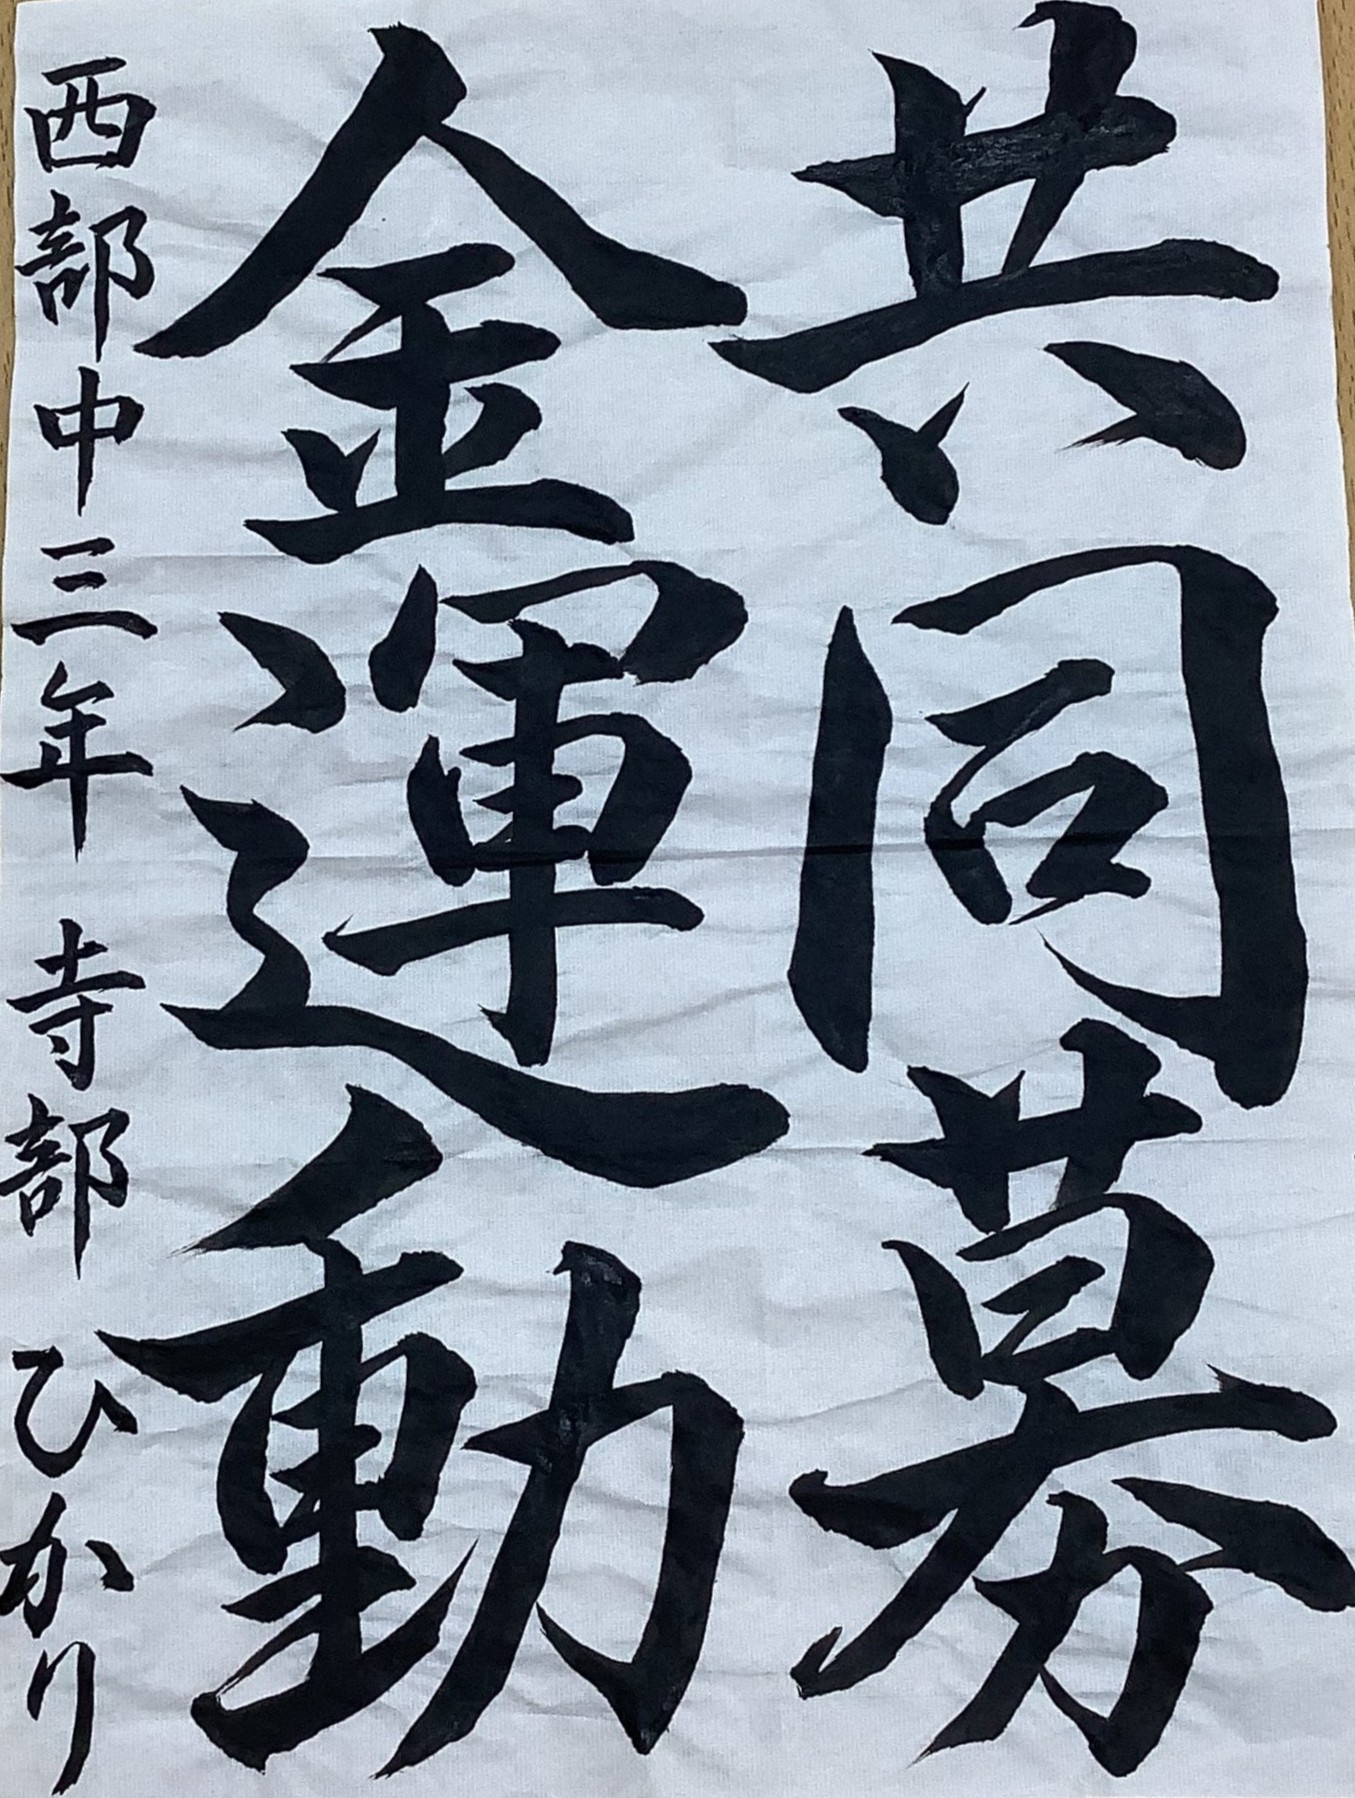 共同募
金運動
西部中三年 寺部 ひかり